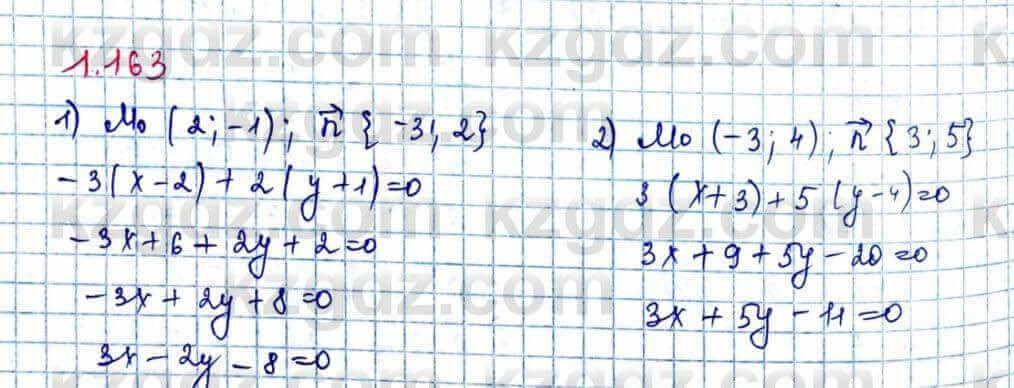 kzgdz.com kzgdz.com
1.163
1) M₀ (2; -1); n⃗ {-3; 2}
-3(x-2)+2(y+1)=0
-3x+6+2y+2=0
-3x+2y+8=0
3x-2y-8=0
2) M₀ (-3; 4); n⃗ {3; 5}
3(x+3)+5(y-4)=0
3x+9+5y-20=0
3x+5y-11=0
kzgdz.com kzgdz.com
kzgdz.com